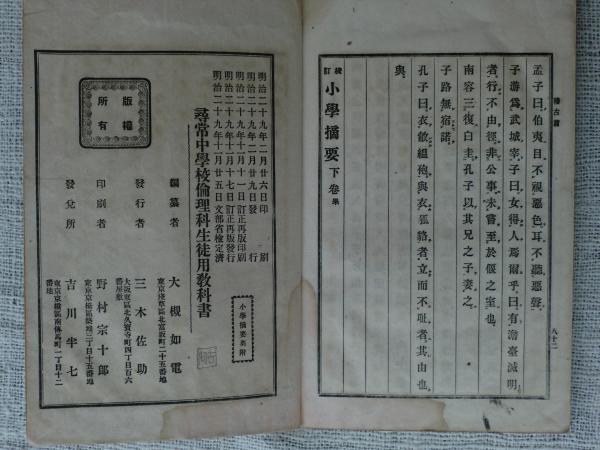 孟子曰伯夷目不視惡色耳不聽惡聲
子游爲武城宰子曰女得人焉爾乎曰有澹臺滅明
者行不由徑非公事未嘗至於偃之室也
南容三復白圭孔子以其兄之子妻之
子路無宿諾
孔子曰衣敝縕袍與衣狐貉者立而不恥者其由也
與
校訂 小學摘要下卷 畢
稽古篇
八十二
明治二十九年二月廿六日印刷
明治二十九年二月廿九日發行
明治二十九年十一月十一日訂正再版印刷
明治二十九年十一月十七日訂正再版發行
明治二十九年十二月廿五日文部省檢定濟
尋常中學校倫理科生徒用教科書
小學摘要奥附
編纂者 大槻如電
東京淺草區北富坂町二十五番地
發行者 三木佐助
大阪東區北久寳寺町四丁目百六番屋敷
印刷者 野村宗十郎
東京京橋區築地三丁目十五番地
發兌所 吉川半七
東京京橋區南傳馬町一丁目十二番地
版權所有